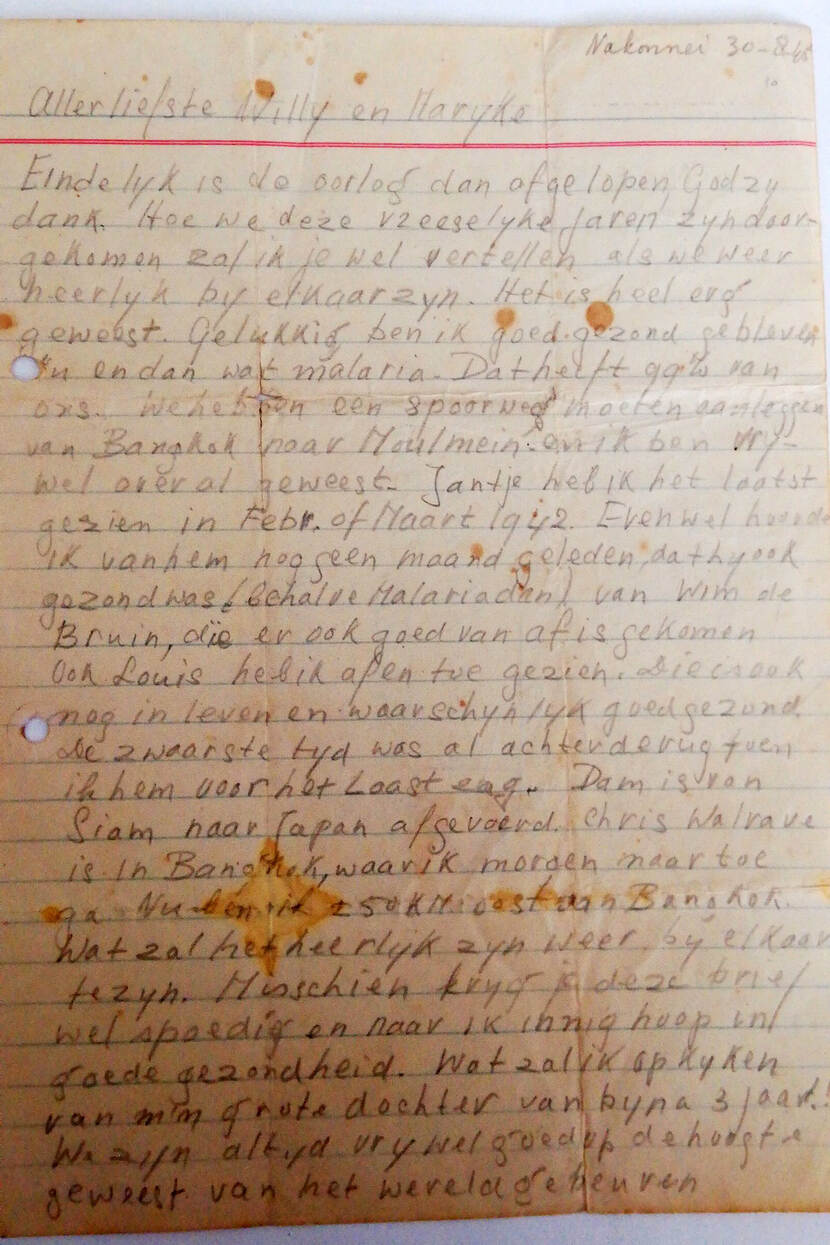 Nakonnei 30-8-45
Allerliefste Willy en Maryke
Eindelyk is de oorlog dan afgelopen, Godzy
dank. Hoe we deze vreeselyke jaren zyn door-
gekomen zal ik je wel vertellen als we weer
heerlyk by elkaar zyn. Het is heel erg
geweest. Gelukkig ben ik goed gezond gebleven
Nu en dan wat malaria. Dat heeft 99% van
ons. We hebben een spoorweg moeten aanleggen
van Bangkok naar Moulmein en ik ben vry-
wel overal geweest. Jantje heb ik het laatst
gezien in Febr. of Maart 1942. Evenwel hoorde
ik van hem nog geen maand geleden, dat hy ook
gezond was (behalve Malaria dan) van Wim de
Bruin, die er ook goed van af is gekomen
Ook Louis heb ik af en toe gezien. Die is ook
nog in leven en waarschynlyk goed gezond.
De zwaarste tyd was al achter de rug toen
ik hem voor het Laast zag. Dam is van
Siam naar Japan afgevoerd. Chris Walrave
is in Bangkok, waar ik morgen naar toe
ga. Nu ben ik ± 50 KM oost van Bangkok.
Wat zal het heerlijk zyn weer by elkaar
te zyn. Misschien kryg je deze brief
wel spoedig en naar ik innig hoop in
goede gezondheid. Wat zal ik opkyken
van m'n grote dochter van byna 3 jaar!
We zyn altyd vrywel goed op de hoogte
geweest van het wereldgebeuren